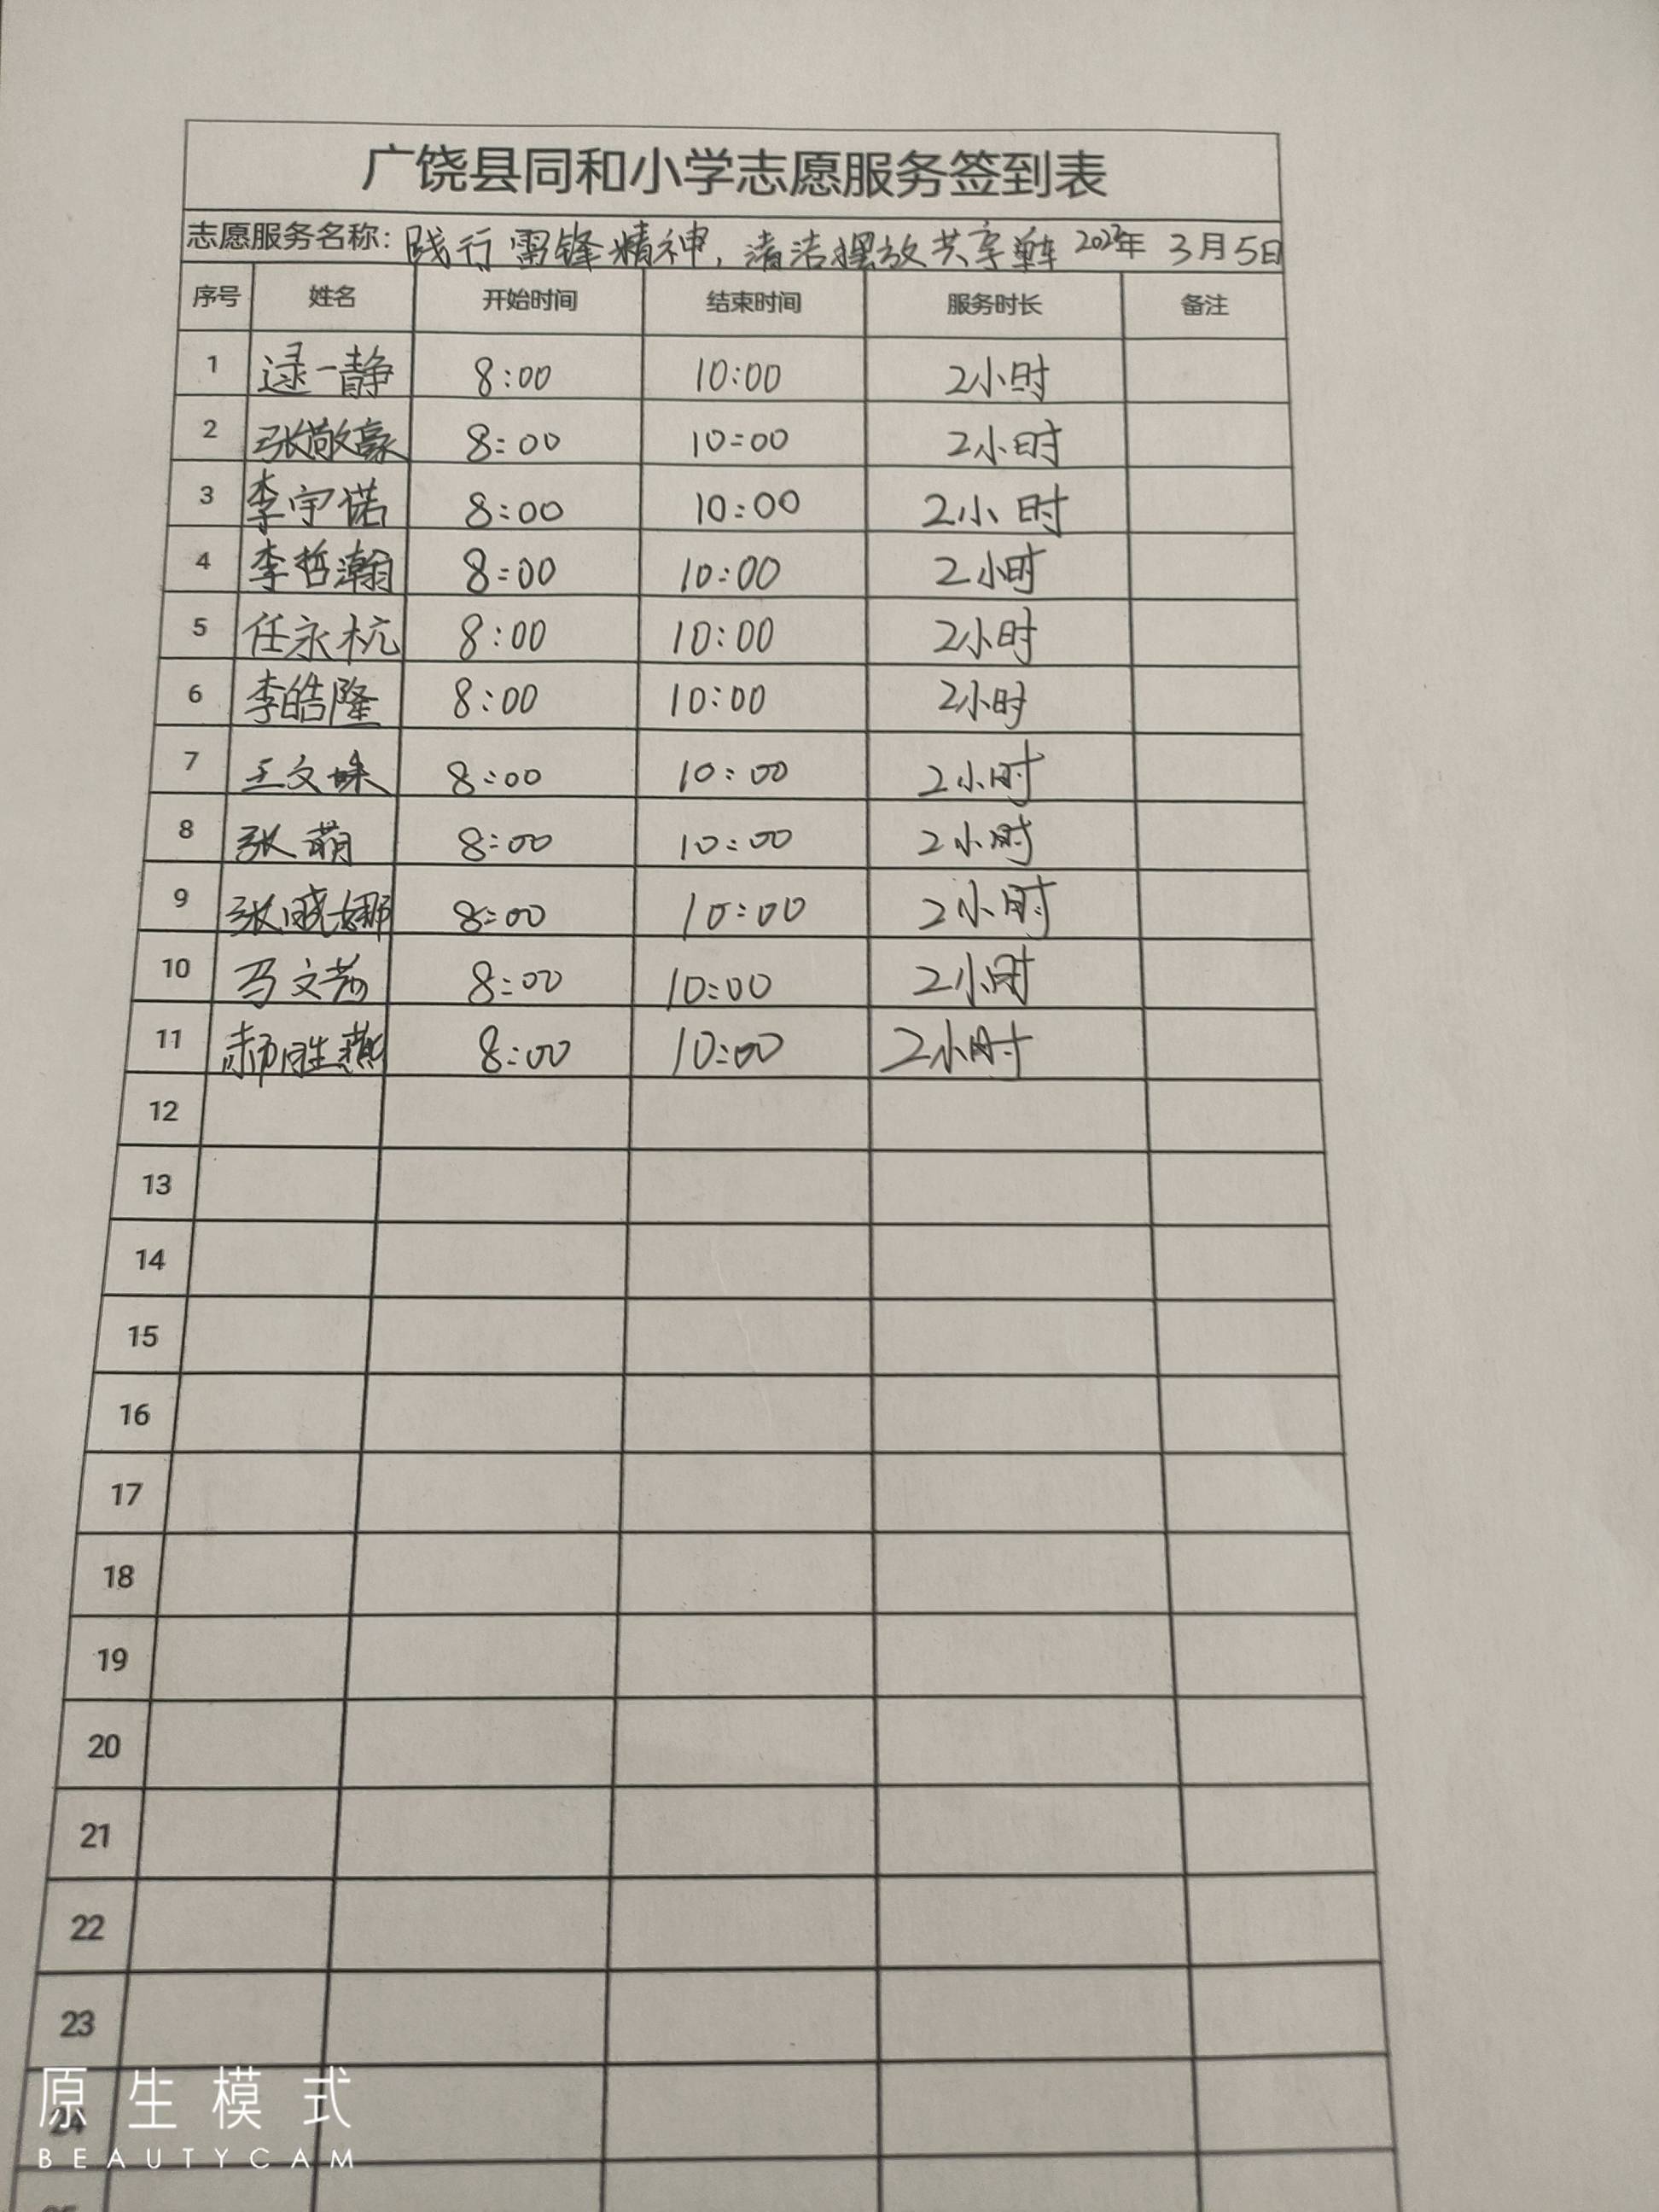 广饶县同和小学志愿服务签到表
志愿服务名称：践行雷锋精神，清洁摆放共享单车 年 3月5日
序号 姓名 开始时间 结束时间 服务时长 备注
1 逯一静 8:00 10:00 2小时
2 张敬豪 8:00 10:00 2小时
3 李宇诺 8:00 10:00 2小时
4 李哲瀚 8:00 10:00 2小时
5 任永杭 8:00 10:00 2小时
6 李皓隆 8:00 10:00 2小时
7 王文姝 8:00 10:00 2小时
8 张萌 8:00 10:00 2小时
9 张晓娜 8:00 10:00 2小时
10 马文 8:00 10:00 2小时
11 郝胜燕 8:00 10:00 2小时
12
13
14
15
16
17
18
19
20
21
22
23
24
原生模式
BEAUTYCAM